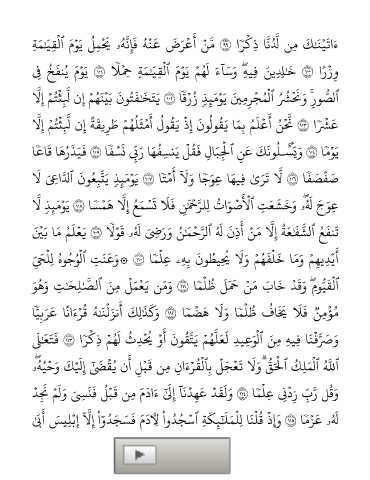 ءَاتَيْنَٰكَ مِن لَّدُنَّا ذِكْرًا ۝٩٩ مَّنْ أَعْرَضَ عَنْهُ فَإِنَّهُۥ يَحْمِلُ يَوْمَ ٱلْقِيَٰمَةِ
وِزْرًا ۝١٠٠ خَٰلِدِينَ فِيهِ ۖ وَسَآءَ لَهُمْ يَوْمَ ٱلْقِيَٰمَةِ حِمْلًا ۝١٠١ يَوْمَ يُنفَخُ فِى
ٱلصُّورِ ۚ وَنَحْشُرُ ٱلْمُجْرِمِينَ يَوْمَئِذٍ زُرْقًا ۝١٠٢ يَتَخَٰفَتُونَ بَيْنَهُمْ إِن لَّبِثْتُمْ إِلَّا
عَشْرًا ۝١٠٣ نَّحْنُ أَعْلَمُ بِمَا يَقُولُونَ إِذْ يَقُولُ أَمْثَلُهُمْ طَرِيقَةً إِن لَّبِثْتُمْ إِلَّا
يَوْمًا ۝١٠٤ وَيَسْـَٔلُونَكَ عَنِ ٱلْجِبَالِ فَقُلْ يَنسِفُهَا رَبِّى نَسْفًا ۝١٠٥ فَيَذَرُهَا قَاعًا
صَفْصَفًا ۝١٠٦ لَّا تَرَىٰ فِيهَا عِوَجًا وَلَآ أَمْتًا ۝١٠٧ يَوْمَئِذٍ يَتَّبِعُونَ ٱلدَّاعِىَ لَا
عِوَجَ لَهُۥ ۖ وَخَشَعَتِ ٱلْأَصْوَاتُ لِلرَّحْمَٰنِ فَلَا تَسْمَعُ إِلَّا هَمْسًا ۝١٠٨ يَوْمَئِذٍ لَّا
تَنفَعُ ٱلشَّفَٰعَةُ إِلَّا مَنْ أَذِنَ لَهُ ٱلرَّحْمَٰنُ وَرَضِىَ لَهُۥ قَوْلًا ۝١٠٩ يَعْلَمُ مَا بَيْنَ
أَيْدِيهِمْ وَمَا خَلْفَهُمْ وَلَا يُحِيطُونَ بِهِۦ عِلْمًا ۝١١٠ ۞ وَعَنَتِ ٱلْوُجُوهُ لِلْحَىِّ
ٱلْقَيُّومِ ۖ وَقَدْ خَابَ مَنْ حَمَلَ ظُلْمًا ۝١١١ وَمَن يَعْمَلْ مِنَ ٱلصَّٰلِحَٰتِ وَهُوَ
مُؤْمِنٌ فَلَا يَخَافُ ظُلْمًا وَلَا هَضْمًا ۝١١٢ وَكَذَٰلِكَ أَنزَلْنَٰهُ قُرْءَانًا عَرَبِيًّا
وَصَرَّفْنَا فِيهِ مِنَ ٱلْوَعِيدِ لَعَلَّهُمْ يَتَّقُونَ أَوْ يُحْدِثُ لَهُمْ ذِكْرًا ۝١١٣ فَتَعَٰلَى
ٱللَّهُ ٱلْمَلِكُ ٱلْحَقُّ ۗ وَلَا تَعْجَلْ بِٱلْقُرْءَانِ مِن قَبْلِ أَن يُقْضَىٰٓ إِلَيْكَ وَحْيُهُۥ ۖ
وَقُل رَّبِّ زِدْنِى عِلْمًا ۝١١٤ وَلَقَدْ عَهِدْنَآ إِلَىٰٓ ءَادَمَ مِن قَبْلُ فَنَسِىَ وَلَمْ نَجِدْ
لَهُۥ عَزْمًا ۝١١٥ وَإِذْ قُلْنَا لِلْمَلَٰٓئِكَةِ ٱسْجُدُوا۟ لِـَٔادَمَ فَسَجَدُوٓا۟ إِلَّآ إِبْلِيسَ أَبَىٰ